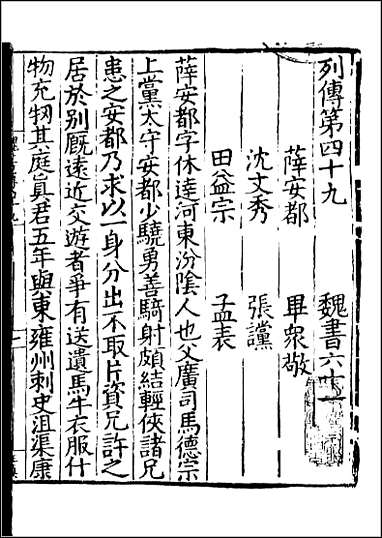 列傳第四十九 魏書六十一
薛安都 畢衆敬
沈文秀 張讜
田益宗 孟表
薛安都字休逹河東汾陰人也父廣司馬德宗
上黨太守安都少驍勇善騎射頗結輕俠諸兄
患之安都乃求以一身分出不取片資兄許之
居於别厩遠近交遊者爭有送遺馬牛衣服什
物充牣其庭眞君五年與東雍州刺史沮渠康